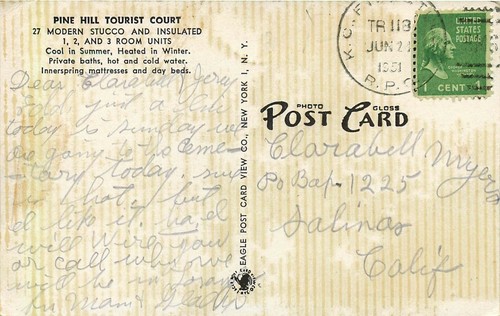 PINE HILL TOURIST COURT
27 MODERN STUCCO AND INSULATED
1, 2, AND 3 ROOM UNITS
Cool in Summer, Heated in Winter.
Private baths, hot and cold water.
Innerspring mattresses and day beds.
Dear Clarabell &
just a line
today is Sunday we
are going to the Ceme-
tary today. sure
is hot, but
I like it.
will wire you
or call when we
will be in
Mom &
EAGLE POST CARD VIEW CO., NEW YORK 1, N. Y.
PHOTO GLOSS
POST CARD
TR 118
JUN
1951
R.P.O.
UNITED
STATES
POSTAGE
1 CENT
Clarabell Myers
Po Box 1225
Salinas
Calif